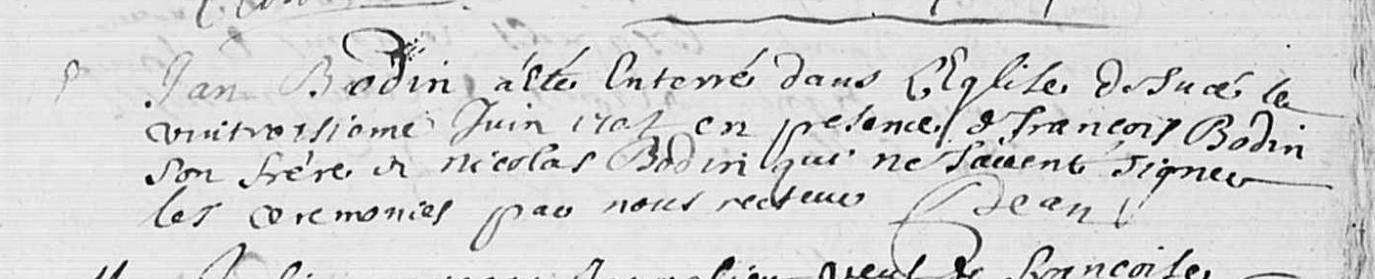 Jan Bodin a esté Enterré dans L'Eglise de Sucé le
vint troisieme Juin en presence de francois Bodin
son frere et nicolas Bodin qui ne savent signer
les ceremonies par nous recteur Jean
francoise